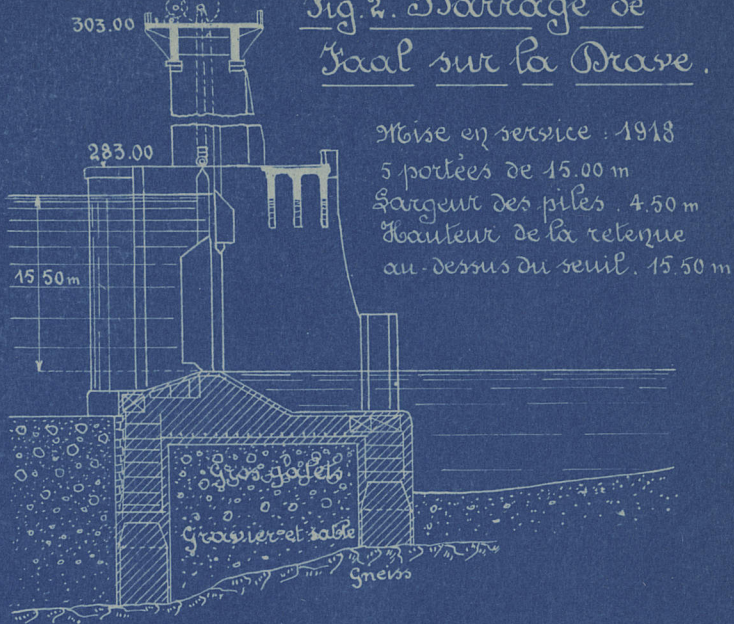 Fig. 2. Barrage de
Faal sur la Drave.
Mise en service : 1918
5 portées de 15.00 m
Largeur des piles . 4.50 m
Hauteur de la retenue
au-dessus du seuil . 15.50 m
303.00
283.00
15 50 m
Gros galets
Gravier et sable
Gneiss